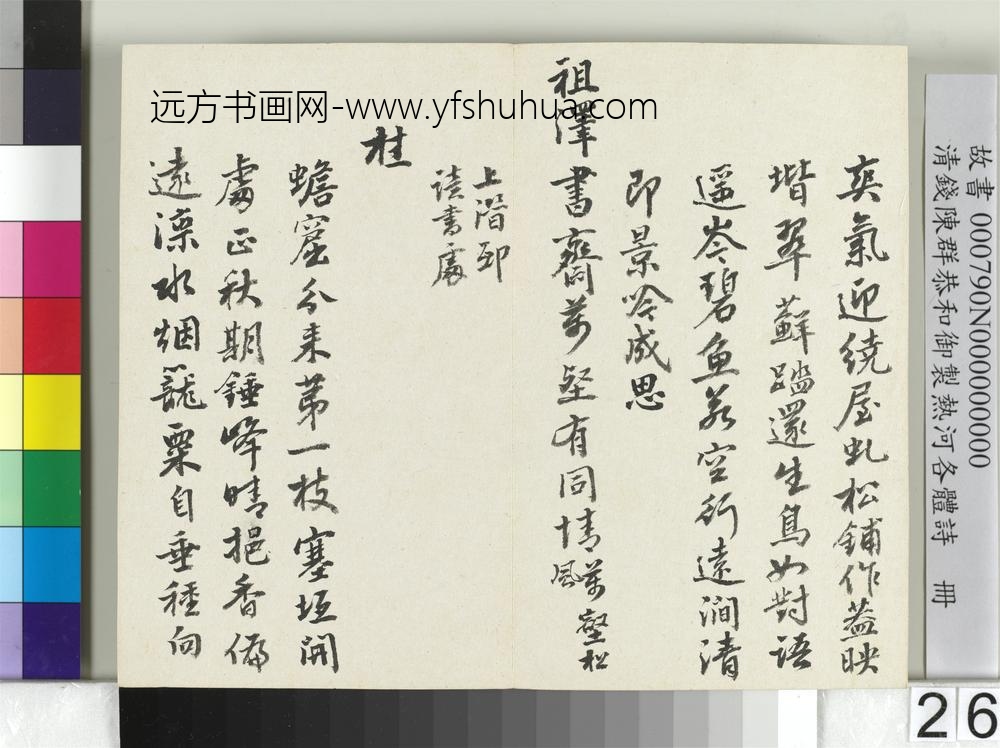 故書 000790N000000000
清錢陳群恭和御製熱河各體詩 冊
爽氣迎繞屋虬松鋪作蓋映
堦翠蘚踏還生鳥如對語
遥岑碧魚若空行遠澗清
即景吟成思
祖澤書齋萬壑有同情萬壑松
風
上階即
讀書處
桂
蟾窟分来第一枝塞垣開
處正秋期錘峰晴挹香偏
遠灤水烟籠粟自垂種向
远方书画网-www.yfshuhua.com
26